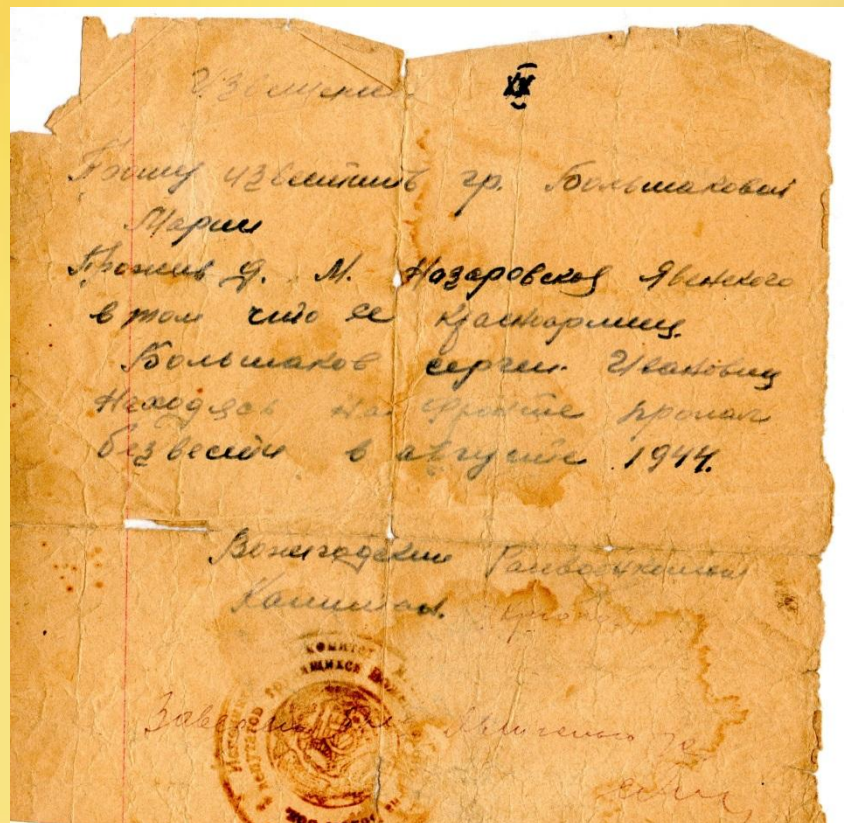 Прошу известить гр. Большаковой
Марии
Прожив д. М. Назаровская Явенского
в том что ее красноармеец
Большаков Сергеи Иванович
Находясь на фронте пропал
без вести в августе 1944.
Вожегодский Райвоенкомат
Капитан
КОМИТЕТ
ДЕПУТАТОВ ТРУДЯЩИХСЯ